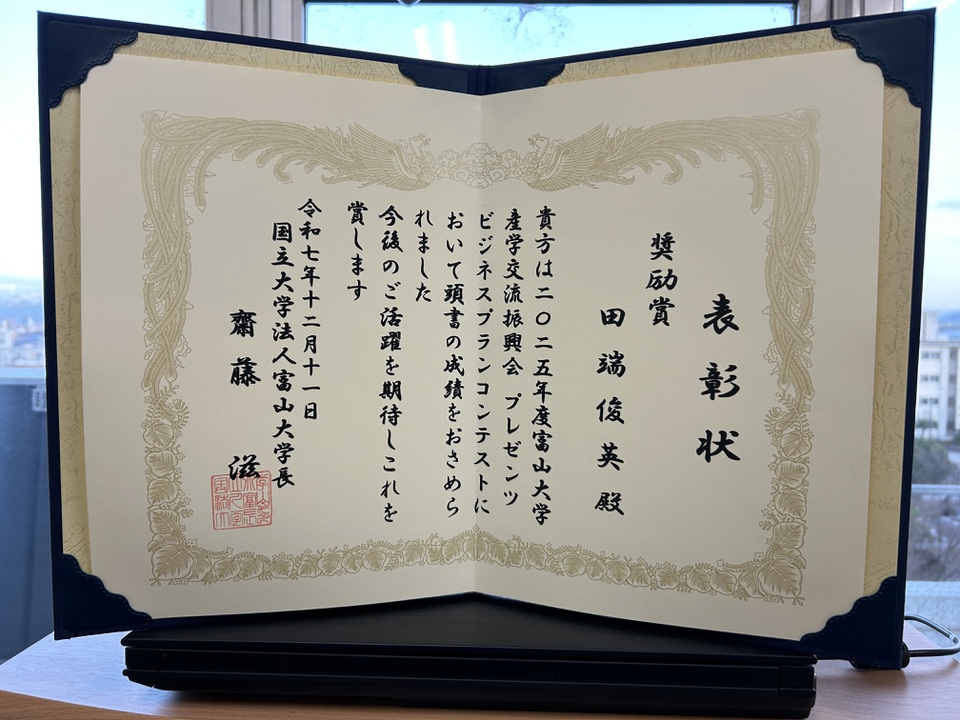 表彰状
奨励賞
田端俊英殿
貴方は二〇二五年度富山大学
産学交流振興会 プレゼンツ
ビジネスプランコンテストに
おいて頭書の成績をおさめら
れました
今後のご活躍を期待しこれを
賞します
令和七年十二月十一日
国立大学法人富山大学長
齋藤 滋